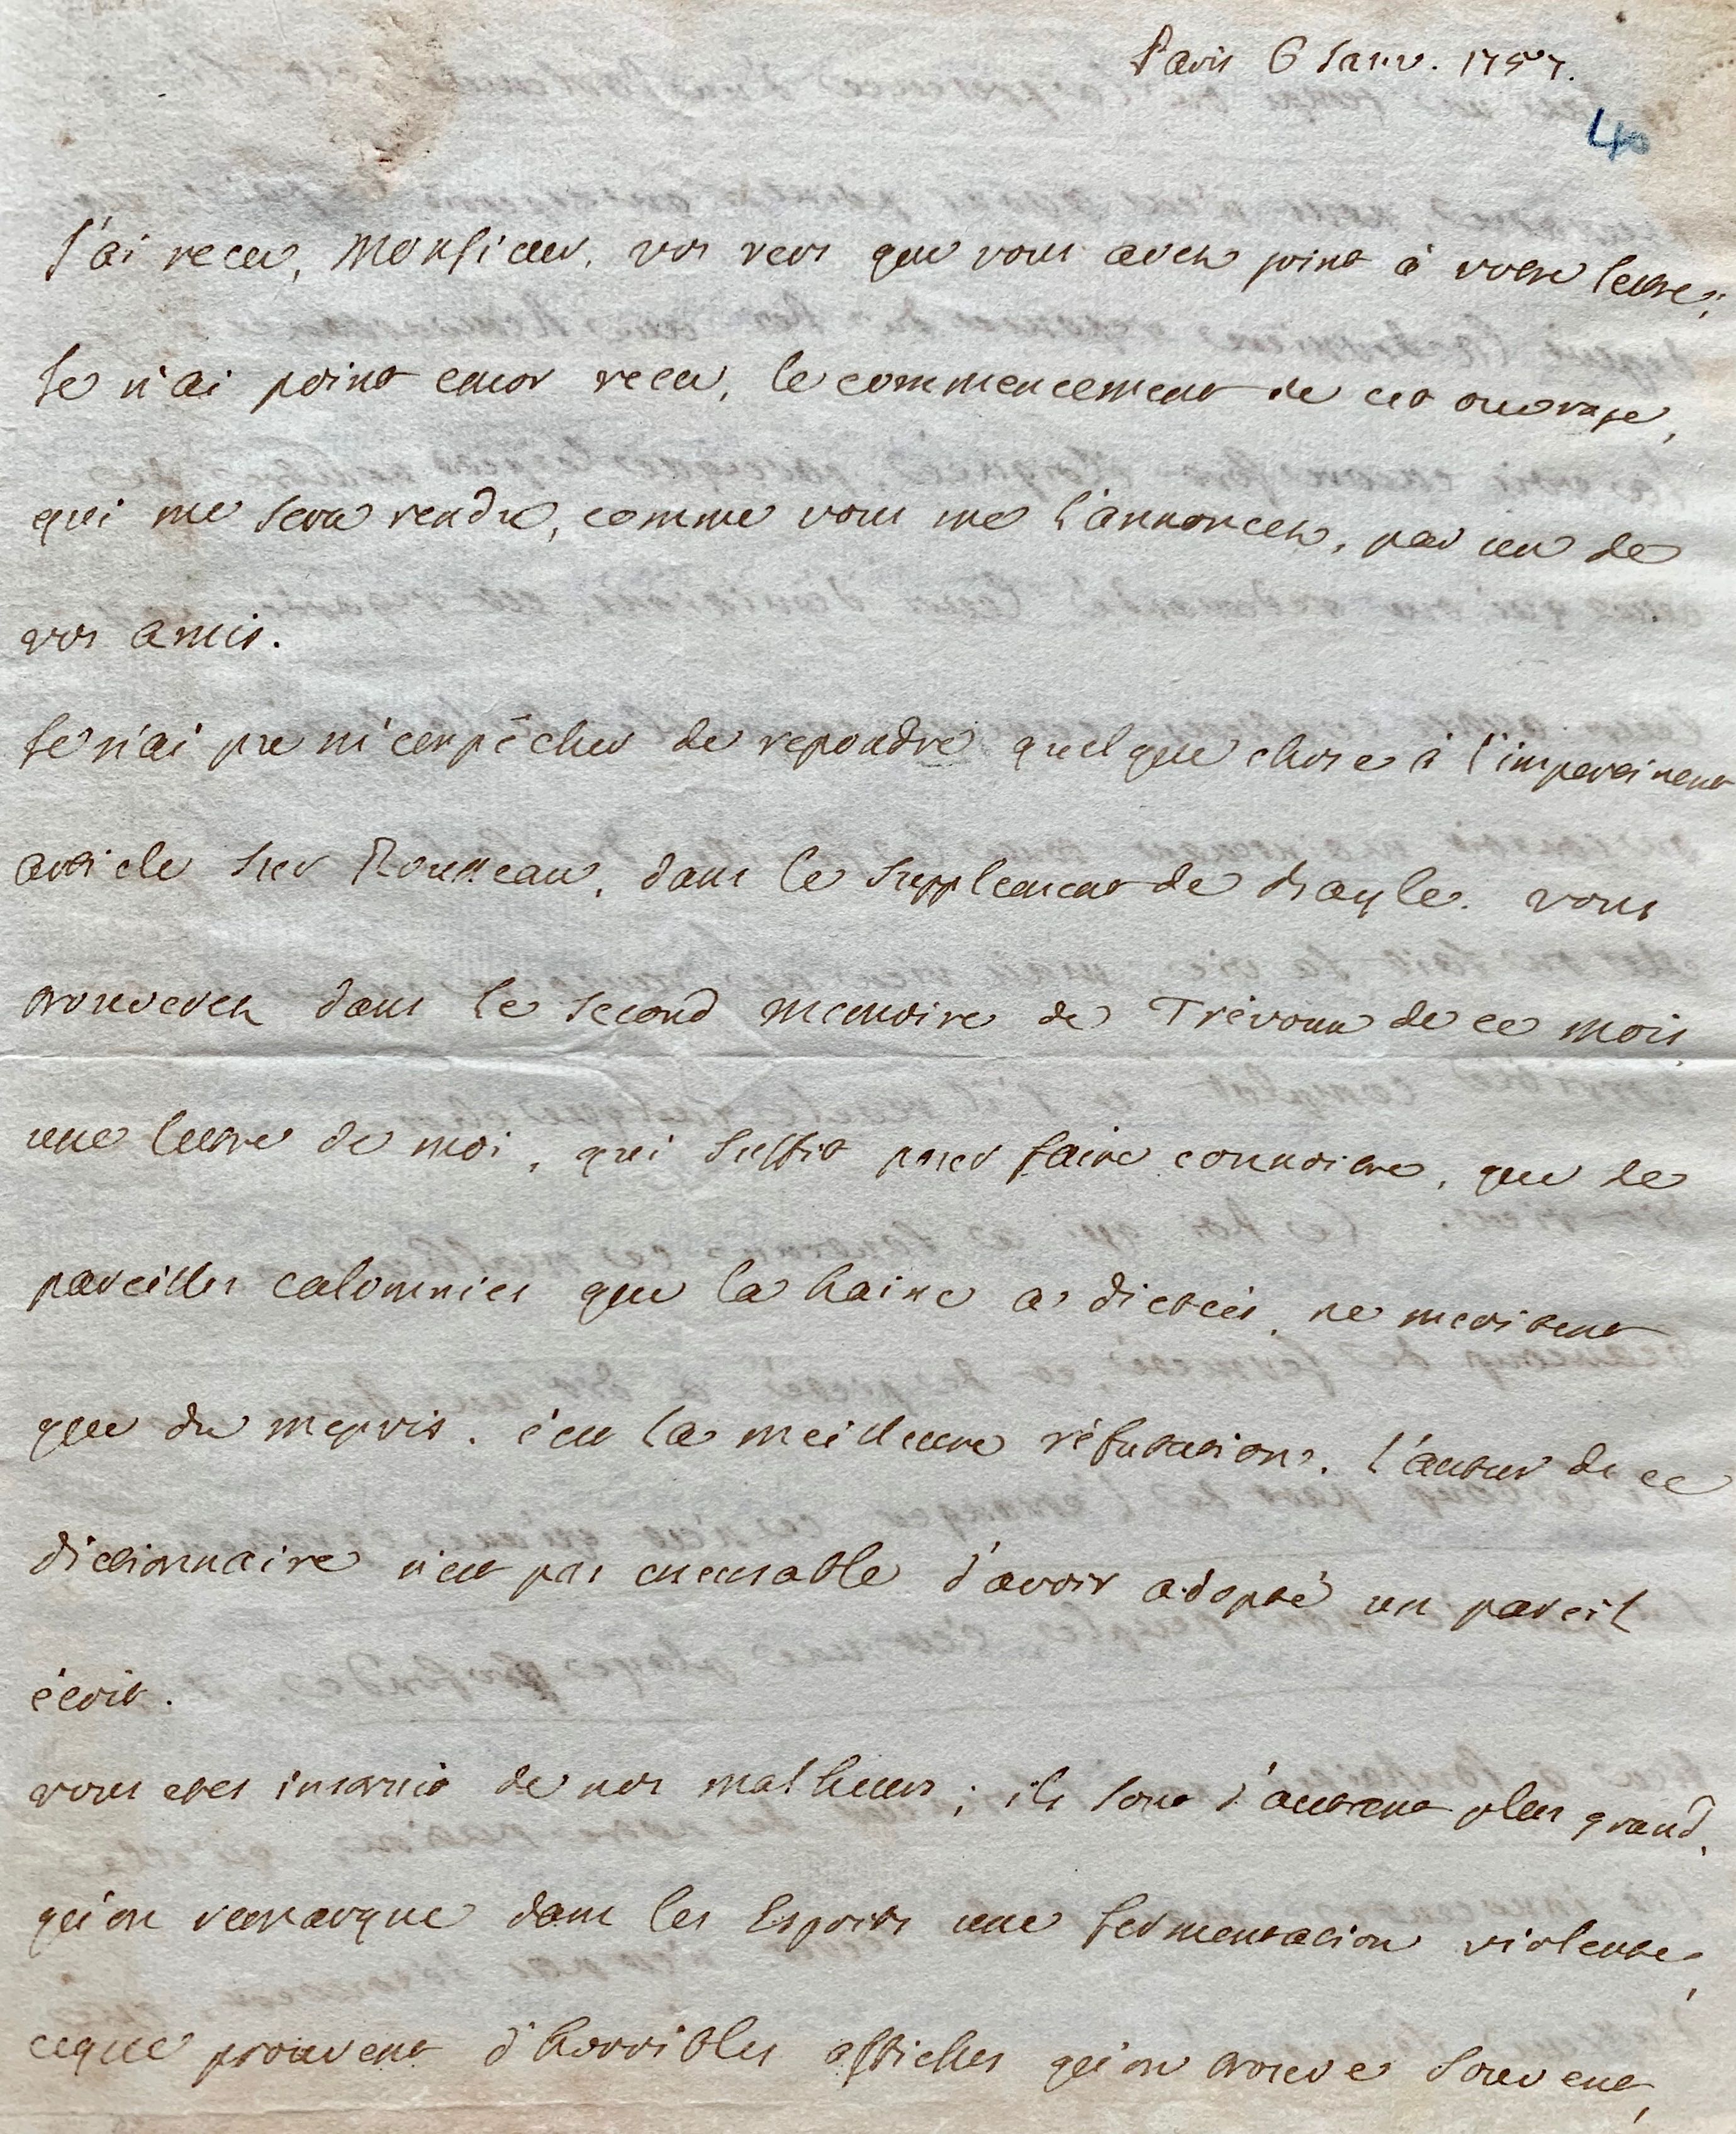 Paris 6 Janv. 1757.
40
J'ai receu, Monsieur, vos vers que vous avez joint à votre lettre;
Je n'ai point encor receu, le commencement de cet ouvrage,
qui me sera rendu, comme vous me l'annoncez, par un de
vos amis.
Je n'ai pu m'empêcher de repondre quelque chose à l'impertinent
article sur Rousseau, dans le supplement de Bayle. vous
trouverez dans le second memoire de Trévoux de ce mois
une lettre de moi, qui suffit pour faire connoitre, que de
pareilles calomnies que la haine a dictées, ne meritent
que du mepris. c'est la meilleure réfutation. l'auteur de ce
dictionnaire n'est pas excusable d'avoir adopté un pareil
écrit.
vous etes instruit de nos malheurs; ils sont d'autant plus grand,
qu'on remarque dans les Esprits une fermentation violente,
ceque prouvent d'horribles affiches qu'on trouve souvent,